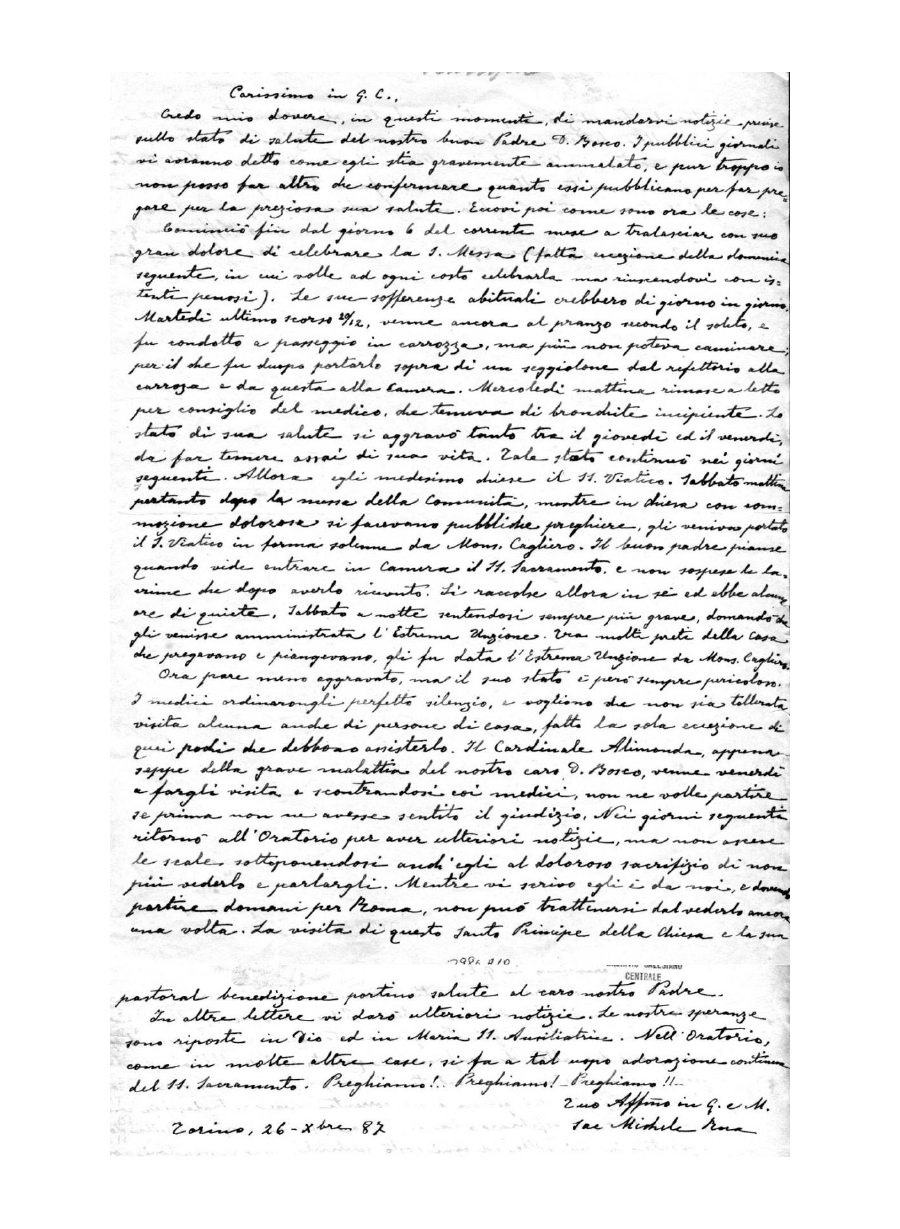 Carissimo in G. C.,
Credo mio dovere, in questi momenti, di mandarvi notizie precise
sullo stato di salute del nostro buon Padre D. Bosco. I pubblici giornali
vi avranno detto come egli stia gravemente ammalato, e pur troppo io
non posso far altro che confermare quanto essi pubblicano per far pre=
gare per la preziosa sua salute. Eccovi poi come sono ora le cose:
Cominciò fin dal giorno 6 del corrente mese a tralasciar con suo
gran dolore di celebrare la S. Messa (fatta eccezione della domenica
seguente, in cui volle ad ogni costo celebrarla ma riuscendovi con is=
tenti penosi). Le sue sofferenze abituali crebbero di giorno in giorno.
Martedì ultimo scorso 20/12, venne ancora al pranzo secondo il solito, e
fu condotto a passeggio in carrozza, ma più non poteva caminare;
per il che fu duopo portarlo sopra di un seggiolone dal refettorio alla
carroza e da questa alla Camera. Mercoledì mattina rimase a letto
per consiglio del medico, che temeva di bronchite incipiente. Lo
stato di sua salute si aggravò tanto tra il giovedì ed il venerdì,
da far temere assai di sua vita. Tale stato continuò nei giorni
seguenti. Allora egli medesimo chiese il SS. Viatico. Sabbato mattina
pertanto dopo la messa della Comunità, mentre in chiesa con com=
mozione dolorosa si facevano pubbliche preghiere, gli veniva portato
il S. Viatico in forma solenne da Mons. Cagliero. Il buon padre pianse
quando vide entrare in Camera il SS. Sacramento, e non sospese le la=
crime che dopo averlo ricevuto. Si raccolse allora in sè ed ebbe alcune
ore di quiete. Sabbato a notte sentendosi sempre più grave, domandò che
gli venisse amministrata l'Estrema Unzione. Tra molti preti della Casa
che pregavano e piangevano, gli fu data l'Estrema Unzione da Mons. Cagliero.
Ora pare meno aggravato, ma il suo stato è però sempre pericoloso.
I medici ordinarongli perfetto silenzio, e vogliono che non sia tollerata
visita alcuna anche di persone di casa, fatta la sola eccezione di
quei pochi che debbono assisterlo. Il Cardinale Alimonda, appena
seppe della grave malattia del nostro caro D. Bosco, venne venerdì
a fargli visita e scontrandosi coi medici, non ne volle partire
se prima non ne avesse sentito il giudizio. Nei giorni seguenti
ritornò all'Oratorio per aver ulteriori notizie, ma non ascese
le scale sottoponendosi anch'egli al doloroso sacrifizio di non
più vederlo e parlargli. Mentre vi scrivo egli è da noi, e dovendo
partire domani per Roma, non può trattenersi dal vederlo ancora
una volta. La visita di questo Santo Principe della Chiesa e la sua
CENTRALE
pastoral benedizione portino salute al caro nostro Padre.
In altre lettere vi darò ulteriori notizie. Le nostre speranze
sono riposte in Dio ed in Maria SS. Ausiliatrice. Nell'Oratorio,
come in molte altre case, si fa a tal uopo adorazione continua
del SS. Sacramento. Preghiamo!.. Preghiamo! Preghiamo!!
Tuo Affmo in G. e M.
Torino, 26 - Xbre 87 Sac Michele Rua